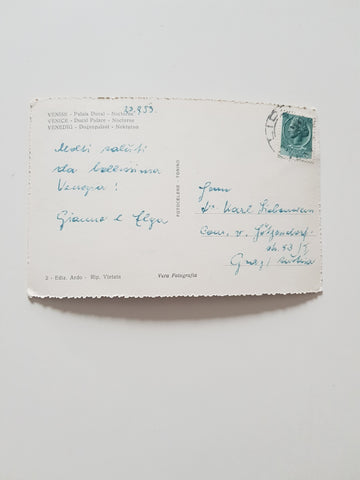 23.9.53.
VENISE - Palais Ducal - Nocturne
VENICE - Ducal Palace - Nocturne
VENEDIG - Dogenpalast - Nokturno
Molti saluti
da bellissima
Venezia!
Gianno e Elga
FOTOCELERE - TORINO
Herrn
Dr. Karl Liebmann
Conr. v. Hötzendorf-
str. 53/I
Graz / Austria
2 - Ediz. Ardo - Rip. Vietata
Vera Fotografia